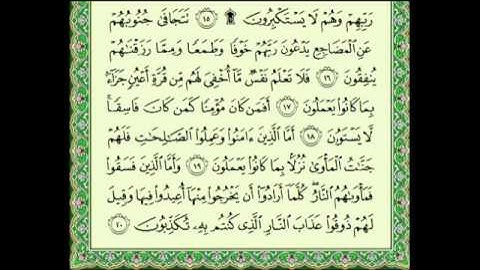 رَبِّهِمْ وَهُمْ لَا يَسْتَكْبِرُونَ ۩ ١٥ تَتَجَافَىٰ جُنُوبُهُمْ
عَنِ ٱلْمَضَاجِعِ يَدْعُونَ رَبَّهُمْ خَوْفًا وَطَمَعًا وَمِمَّا رَزَقْنَٰهُمْ
يُنفِقُونَ ١٦ فَلَا تَعْلَمُ نَفْسٌ مَّآ أُخْفِىَ لَهُم مِّن قُرَّةِ أَعْيُنٍ جَزَآءًۢ
بِمَا كَانُوا۟ يَعْمَلُونَ ١٧ أَفَمَن كَانَ مُؤْمِنًا كَمَن كَانَ فَاسِقًا ۚ
لَّا يَسْتَوُۥنَ ١٨ أَمَّا ٱلَّذِينَ ءَامَنُوا۟ وَعَمِلُوا۟ ٱلصَّٰلِحَٰتِ فَلَهُمْ
جَنَّٰتُ ٱلْمَأْوَىٰ نُزُلًۢا بِمَا كَانُوا۟ يَعْمَلُونَ ١٩ وَأَمَّا ٱلَّذِينَ فَسَقُوا۟
فَمَأْوَىٰهُمُ ٱلنَّارُ ۖ كُلَّمَآ أَرَادُوٓا۟ أَن يَخْرُجُوا۟ مِنْهَآ أُعِيدُوا۟ فِيهَا وَقِيلَ
لَهُمْ ذُوقُوا۟ عَذَابَ ٱلنَّارِ ٱلَّذِى كُنتُم بِهِۦ تُكَذِّبُونَ ٢٠